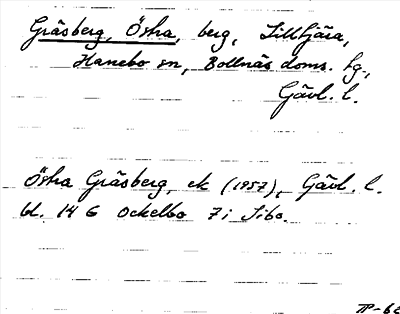 Gräsberg, Östra, berg, Lilltjära,
Hanebo sn, Bollnäs doms. tg.,
Gävl. l.
Östra Gräsberg, ek (1957), Gävl. l.
bl. 14 G Ockelbo 7 i Sibo.